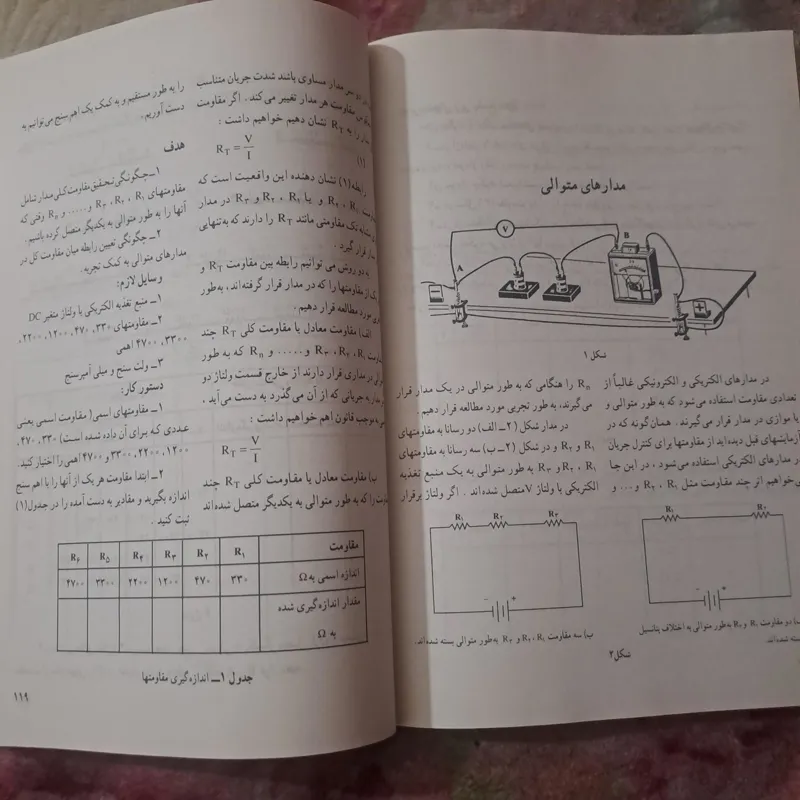 مدارهای متوالی
V
A
B
شکل ۱
در مدارهای الکتریکی و الکترونیکی غالباً از
تعدادی مقاومت استفاده می‌شود که به طور متوالی و
یا موازی در مدار قرار می‌گیرند. همان‌گونه که در
آزمایشهای قبل دیده‌اید از مقاومتها برای کنترل جریان
در مدارهای الکتریکی استفاده می‌شود ، در این جا
می‌خواهیم اثر چند مقاومت مثل R۱ ، R۲ و ... و
Rn را هنگامی که به طور متوالی در یک مدار قرار
می‌گیرند، به طور تجربی مورد مطالعه قرار دهیم .
در مدار شکل (۲ــ الف) دو رسانا به مقاومتهای
R۱ و R۲ و در شکل (۲ــ ب) سه رسانا به مقاومتهای
R۱ ، R۲ و R۳ به طور متوالی به یک منبع تغذیه
الکتریکی با ولتاژ V متصل شده‌اند . اگر ولتاژ برقرار
R۱ R۲
R۱ R۲ R۳
دو مقاومت R۱ و R۲ به‌طور متوالی به اختلاف پتانسیل
بسته شده‌اند.
ب) سه مقاومت R۱ ، R۲ و R۳ به‌طور متوالی بسته شده‌اند.
شکل ۲
سر مدار مساوی باشند شدت جریان متناسب
مقاومت هر مدار تغییر می‌کند . اگر مقاومت
را به RT نشان دهیم خواهیم داشت :
RT = V/I
(۱)
رابطه (۱) نشان دهنده این واقعیت است که
R۱ ، R۲ و یا R۱ ، R۲ و R۳ در مدار
مشابه تک مقاومتی مانند RT را دارند که به‌تنهایی
مدار قرار گیرد .
به دو روش می توانیم رابطه بین مقاومت RT و
یک از مقاومتها را که در مدار قرار گرفته‌اند، به‌طور
مورد مطالعه قرار دهیم .
الف) مقاومت معادل یا مقاومت کلی RT چند
R۱ ، R۲ ، R۳ و ..... و Rn که به طور
در مداری قرار دارند از خارج قسمت ولتاژ دو
به جریانی که از آن می‌گذرد به دست می‌آید ،
به موجب قانون اهم خواهیم داشت :
RT = V/I
ب) مقاومت معادل یا مقاومت کلی RT چند
را که به طور متوالی به یکدیگر متصل شده‌اند
را به طور مستقیم و به کمک یک اهم سنج می‌توانیم به
دست آوریم .
هدف
۱ــ چگونگی تحقیق مقاومت کلی مدار شامل
مقاومتهای R۱ ، R۲ ، R۳ و ..... و Rn وقتی که
آنها را به طور متوالی به یکدیگر متصل کرده باشیم .
۲ــ چگونگی تعیین رابطه میان مقاومت کل در
مدارهای متوالی به کمک تجربه .
وسایل لازم:
۱ــ منبع تغذیه الکتریکی با ولتاژ متغیر DC
۲ــ مقاومتهای ۳۳۰، ۴۷۰، ۱۲۰۰، ۲۲۰۰،
۳۳۰۰، ۴۷۰۰ اهمی
۳ــ ولت سنج و میلی آمپرسنج
دستور کار:
۱ــ مقاومتهای اسمی( مقاومت اسمی یعنی
عـددی کـه بـرای آن داده شده است) ۳۳۰، ۴۷۰،
۱۲۰۰، ۲۲۰۰، ۳۳۰۰ و ۴۷۰۰ اهمی را اختیار کنید.
۲ــ ابتدا مقاومت هر یک از آنها را با اهم سنج
اندازه بگیرید و مقادیر به دست آمده را در جدول(۱)
ثبت کنید .
مقاومت R۱ R۲ R۳ R۴ R۵ R۶
اندازه اسمی به Ω ۳۳۰ ۴۷۰ ۱۲۰۰ ۲۲۰۰ ۳۳۰۰ ۴۷۰۰
مقدار اندازه‌گیری شده
به Ω
جدول ۱ــ اندازه‌گیری مقاومتها
۱۱۹